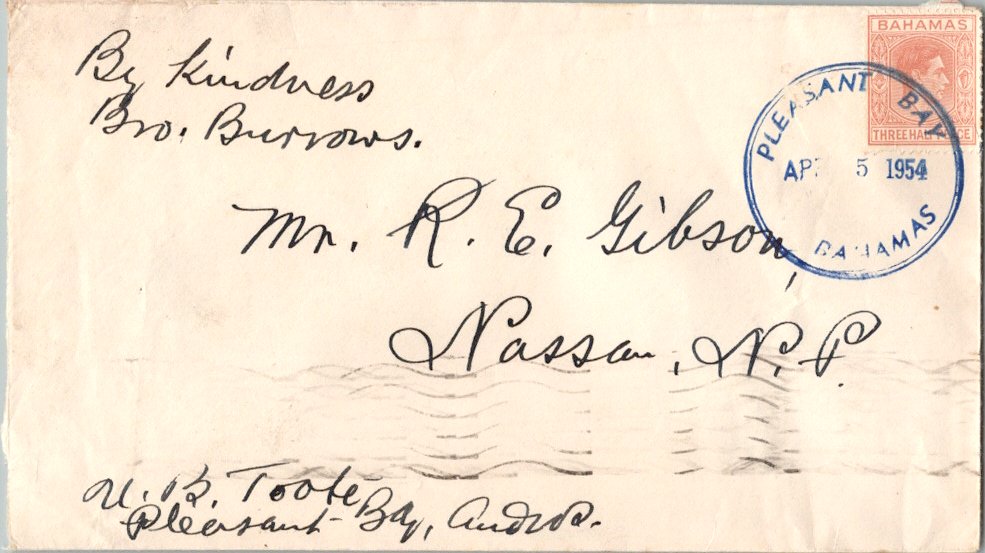 By Kindness
Bro. Burrows.
BAHAMAS
THREE HALFPENCE
PLEASANT BAY
APR 5 1954
BAHAMAS
Mr. R. E. Gibson,
Nassau, N. P.
U. B. Toote
Pleasant Bay, Andros.